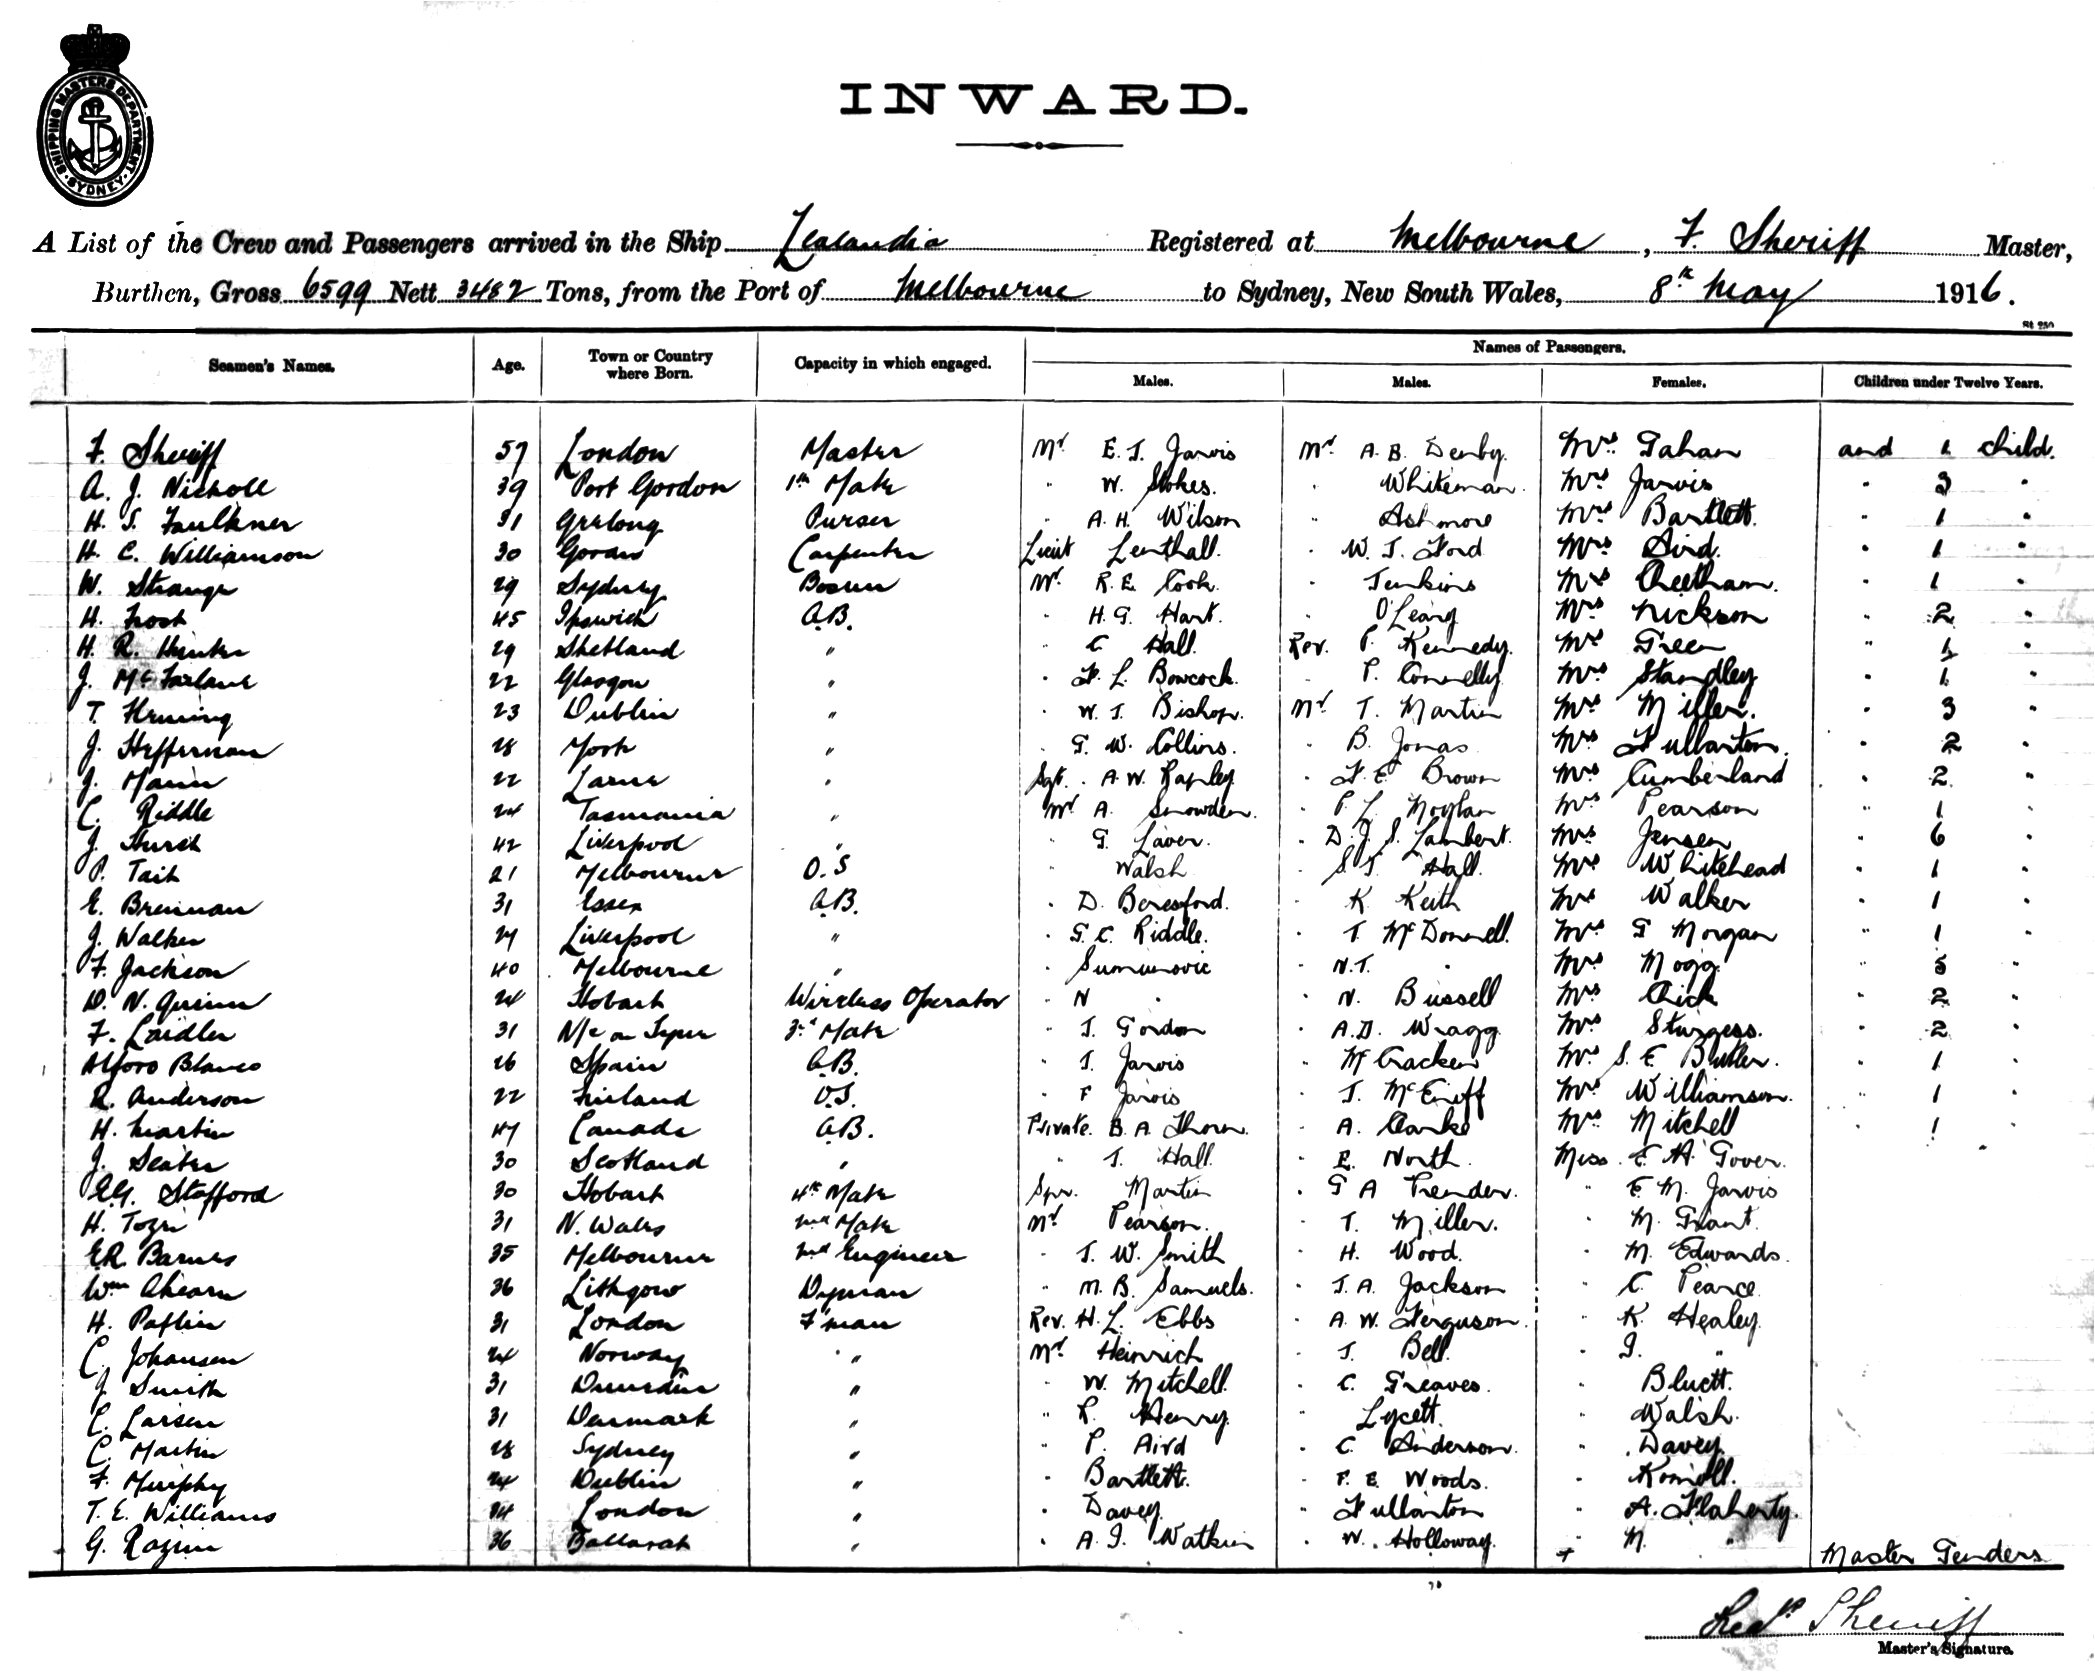 SHIPPING MASTERS DEPARTMENT. SYDNEY.
INWARD.
A List of the Crew and Passengers arrived in the Ship Zealandia Registered at Melbourne, F. Sheriff Master,
Burthen, Gross 6599 Nett 3482 Tons, from the Port of Melbourne to Sydney, New South Wales, 8th May 1916.
St 250
Seamen's Names. Age. Town or Country where Born. Capacity in which engaged. Names of Passengers.
Males. Males. Females. Children under Twelve Years.
F. Sheriff 57 London Master Mr E. J. Jarvis Mr A. B. Denby. Mrs Gahan and 1 child.
A. J. Nicholl 39 Port Gordon 1st Mate " W. Stokes. " Whiteman. Mrs Jarvis " 3 "
H. S. Faulkner 31 Geelong Purser " A. H. Wilson " Ashmore Mrs Bartlett. " 1 "
H. C. Williamson 30 Govan Carpenter Lieut Lenthall. " W. J. Ford Mrs Aird. " 1 "
W. Strange 29 Sydney Bosun Mr. R. E. Cook. " Jenkins Mrs Cheetham. " 1 "
H. Frost 45 Ipswich A.B. " H. G. Hart. " O'Leary Mrs Nickson " 2 "
H. R. Hunter 29 Shetland " " C Hall. Rev. P. Kennedy. Mrs Green " 1 "
J. McFarlane 22 Glasgow " " F. L. Bowcock. " P. Connelly Mrs Standley " 1 "
T. Fleming 23 Dublin " " W. J. Bishop. Mr. T. Martin Mrs Miller. " 3 "
J. Heffernan 28 York " " G. W. Collins. " B. Jonas Mrs Fullarton. " 2 "
J. Mann 22 Larne " Sgt. A. W. Rapley " F. E. Brown Mrs Cumberland " 2 "
C. Riddle 24 Tasmania " Mr A. Snowden. " P L Moylan Mrs Pearson " 1 "
J. Hurst 42 Liverpool " G. Laver. " D. J. S. Lambert. Mrs Jensen " 6 "
P. Tait 21 Melbourne O.S " Walsh " S. J. Hall. Mrs Whitehead " 1 "
E. Brennan 31 Essex A.B. " D. Beresford. " K Keith Mrs Walker " 1 "
J. Walker 24 Liverpool " " G. C. Riddle. " T. McDonnell. Mrs G Morgan " 1 "
F. Jackson 40 Melbourne " " Sumunovic " N.T. " Mrs Mogg. " 5 "
D. N. Quinn 24 Hobart Wireless Operator " N " " N. Bussell Mrs Chick " 2 "
F. Laidler 31 N/c on Tyne 3rd Mate " J. Gordon " A.D. Wragg Mrs Sturgess. " 2 "
Alforo Blanco 26 Spain A.B. " J. Jarvis " McCracken Mrs S. E. Butler. " 1 "
R. Anderson 22 Finland O.S. " F Jarvis " J. McEniff Mrs Williamson. " 1 "
H. Martin 47 Canada A.B. Private. B. A. Thorn. " A. Clarke Mrs Mitchell " 1 "
J. Seater 30 Scotland " " J. Hall. " E. North. Miss. E. A. Gover. "
E.G. Stafford 30 Hobart 4th Mate Spr. Martin " G A Prender. " E. M. Jarvis
H. Tozer 31 N. Wales 2nd Mate Mr Pearson. " T. Miller. " M. Grant.
E.R. Barnes 35 Melbourne 2nd Engineer " J. W. Smith " H. Wood. " M. Edwards.
Wm Ahearn 36 Lithgow Dyman " M. B. Samuels. " J. A. Jackson " C. Pearce
H. Paflin 31 London F'man Rev. H. L. Ebbs " A. W. Ferguson. " K. Healey.
C. Johansen 24 Norway " Mr Heinrich " J. Bell. " I. "
J Smith 31 Dunedin " " W. Mitchell " C. Greaves. " Bluett.
C. Larsen 31 Denmark " " R. Henry. " Lycett. " Walsh.
C. Martin 28 Sydney " " P. Aird " C. Anderson. " Davey.
F. Murphy 24 Dublin " " Bartlett. " F. E. Woods.
T. E. Williams 34 London " " Davey. " Fullarton " A. Flaherty.
G. 36 Ballarat " " A. J. Watkin " W. Holloway. + M. " Master Genders
Fredk Sheriff
Master's Signature.